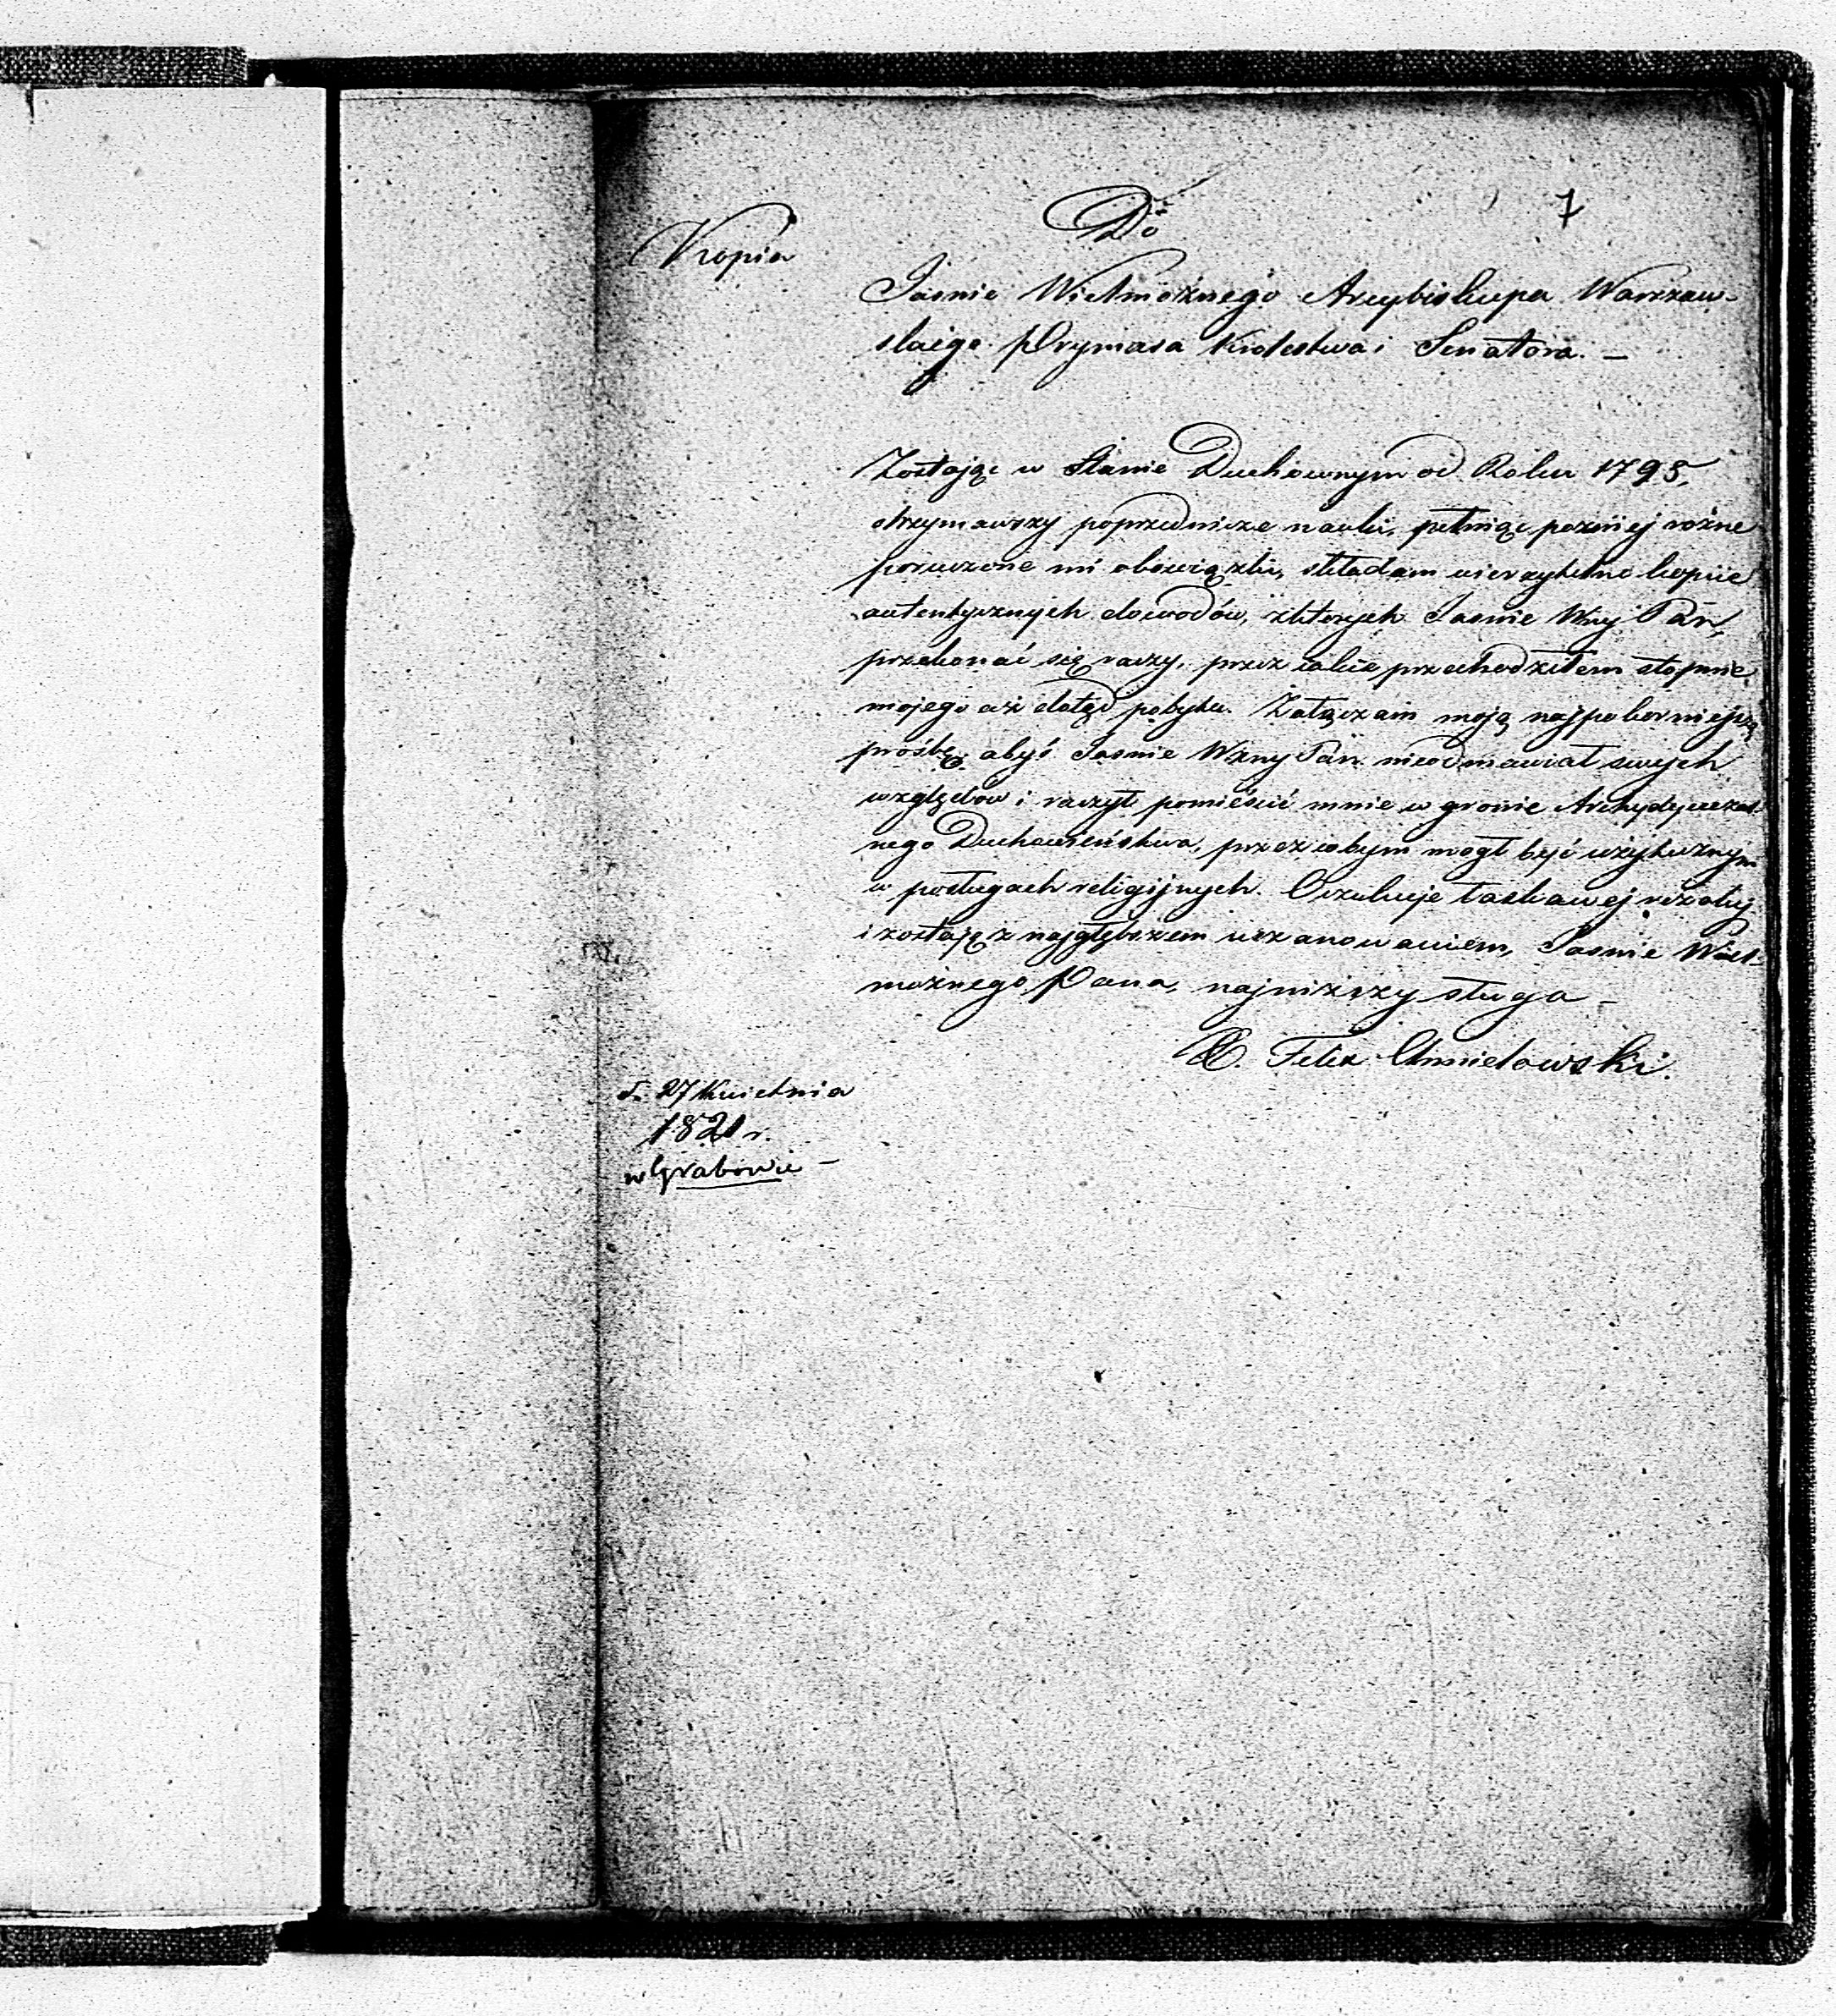 7
Kopia
Do
Jasnie Wielmożnego Arcybiskupa Warszaw-
skiego Prymasa Krolestwa i Senatora. —
Zostając w Stanie Duchownym od Roku 1795,
otrzymawszy poprzednicze nauki, pełniąc pozniej rożne
poruczone mi obowiązki, składam wierzytelne kopiie
autentycznych dowodów, z ktorych Jasnie Wny Pan,
przekonać się raczy, przez iakie przechodziłem stopnie
mojego aż dotąd pobytu. Załączam moją najpokorniejszą
prośbę, abyś Jasnie Wżny Pan nieodmawiał swych
względów i raczył pomieścić mnie w gronie Archydyecezal-
nego Duchowieństwa, przez cobym mogł być użytecznym
w posługach religijnych. Oczekuje łaskawej rezolucj
i zostaję z najgłębszem uszanowaniem, Jasnie Wiel-
możnego Pana, najniższy sługa —
X. Felix Chmielowski.
d. 27 Kwietnia
1821 r.
w Grabowie —